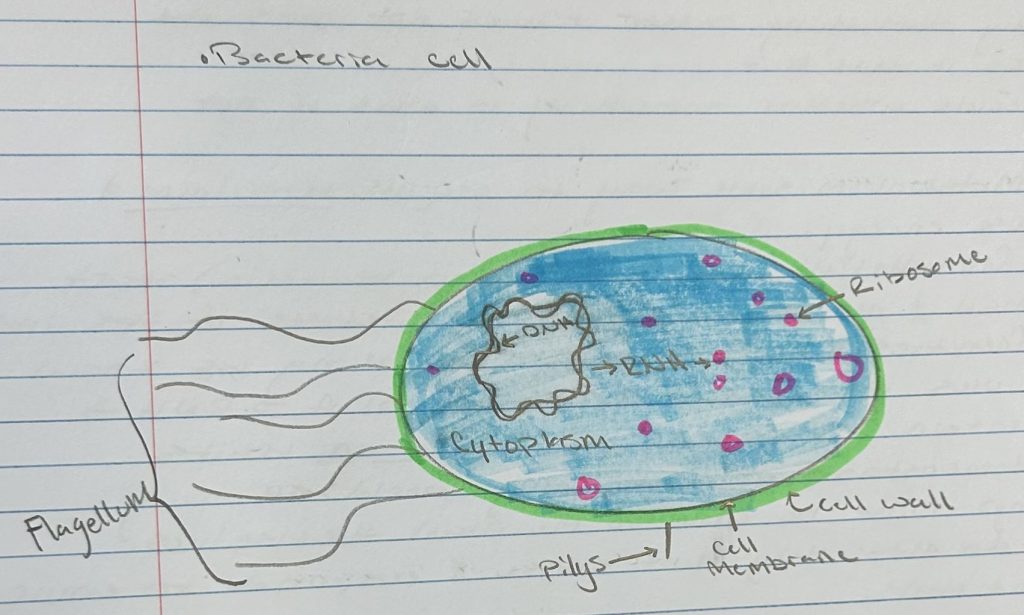 •Bacteria cell
Ribosome
DNA
RNA
Cytoplasm
Flagellum
cell wall
Pilys
cell
Membrane